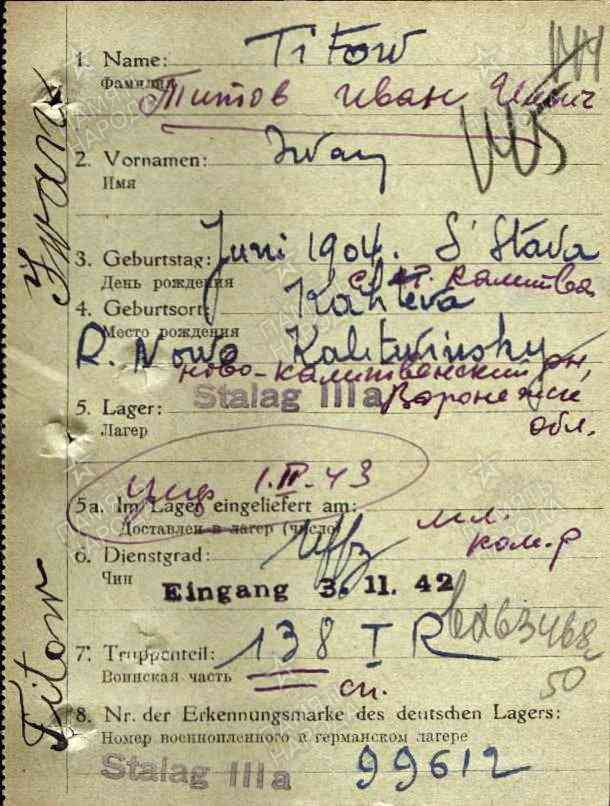 144
1. Name: Titow
Фамилия Титов Иван Ильич
445
2. Vornamen: Iwan
Имя
3. Geburtstag: Juni 1904. S' Stáva
День рождения ст. Калитва
4. Geburtsort: Kalitëva
Место рождения
R. Nowo Kalitwinsky
Ново-Калитвенский р-н,
5. Lager: Stalag IIIa Воронежск
Лагерь обл.
5a. Im Lager eingeliefert am: умер 1.II.43
Доставлен в лагерь (число)
6. Dienstgrad: Uffz мл. ком-р
Чин
Eingang 3. 11. 42
7. Truppenteil: 138 I R
Воинская часть сп.
50
8. Nr. der Erkennungsmarke des deutschen Lagers:
Номер военнопленного в германском лагере
Stalag IIIa 99612
Iwan
Titow